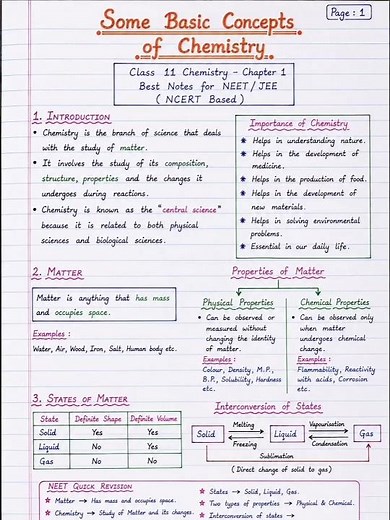 Some Basic Concepts
of Chemistry
Page : 1
Class 11 Chemistry - Chapter 1
Best Notes for NEET / JEE
( NCERT Based )
1. INTRODUCTION
• Chemistry is the branch of science that deals
with the study of matter.
• It involves the study of its composition,
structure, properties and the changes it
undergoes during reactions.
• Chemistry is known as the "central science"
because it is related to both physical
sciences and biological sciences.
Importance of Chemistry
* Helps in understanding nature.
* Helps in the development of
medicine.
* Helps in the production of food.
* Helps in the development of
new materials.
* Helps in solving environmental
problems.
* Essential in our daily life.
2. MATTER
Matter is anything that has mass
and occupies space.
Examples :
Water, Air, Wood, Iron, Salt, Human body etc.
Properties of Matter
Physical Properties
• Can be observed or
measured without
changing the identity
of matter.
Examples :
Colour, Density, M.P.,
B.P., Solubility, Hardness
etc.
Chemical Properties
• Can be observed only
when matter
undergoes chemical
change.
Examples :
Flammability, Reactivity
with acids, Corrosion
etc.
3. STATES OF MATTER
State Definite Shape Definite Volume
Solid Yes Yes
Liquid No Yes
Gas No No
Interconversion of States
Melting Vapourisation
Solid Liquid Gas
Freezing Condensation
Sublimation
( Direct change of solid to gas )
NEET QUICK REVISION
★ Matter → Has mass and occupies space.
★ Chemistry → Study of Matter and its changes.
★ States → Solid, Liquid, Gas.
★ Two types of properties → Physical & Chemical.
★ Interconversion of states →